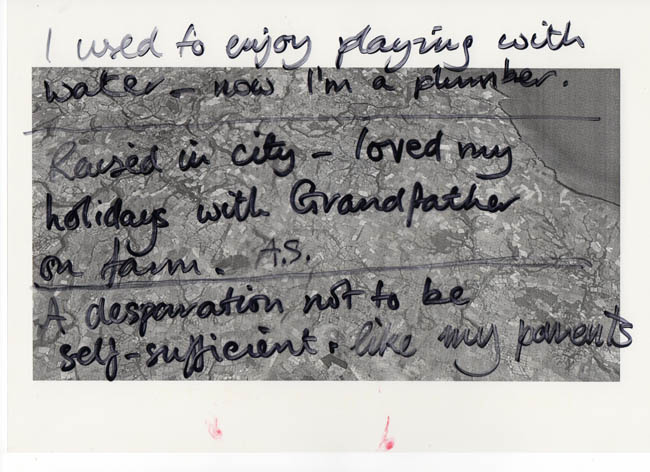 I used to enjoy playing with
water - now I'm a plumber.
Raised in city - loved my
holidays with Grandfather
on farm. A.S.
A desparation not to be
self-sufficient. like my parents